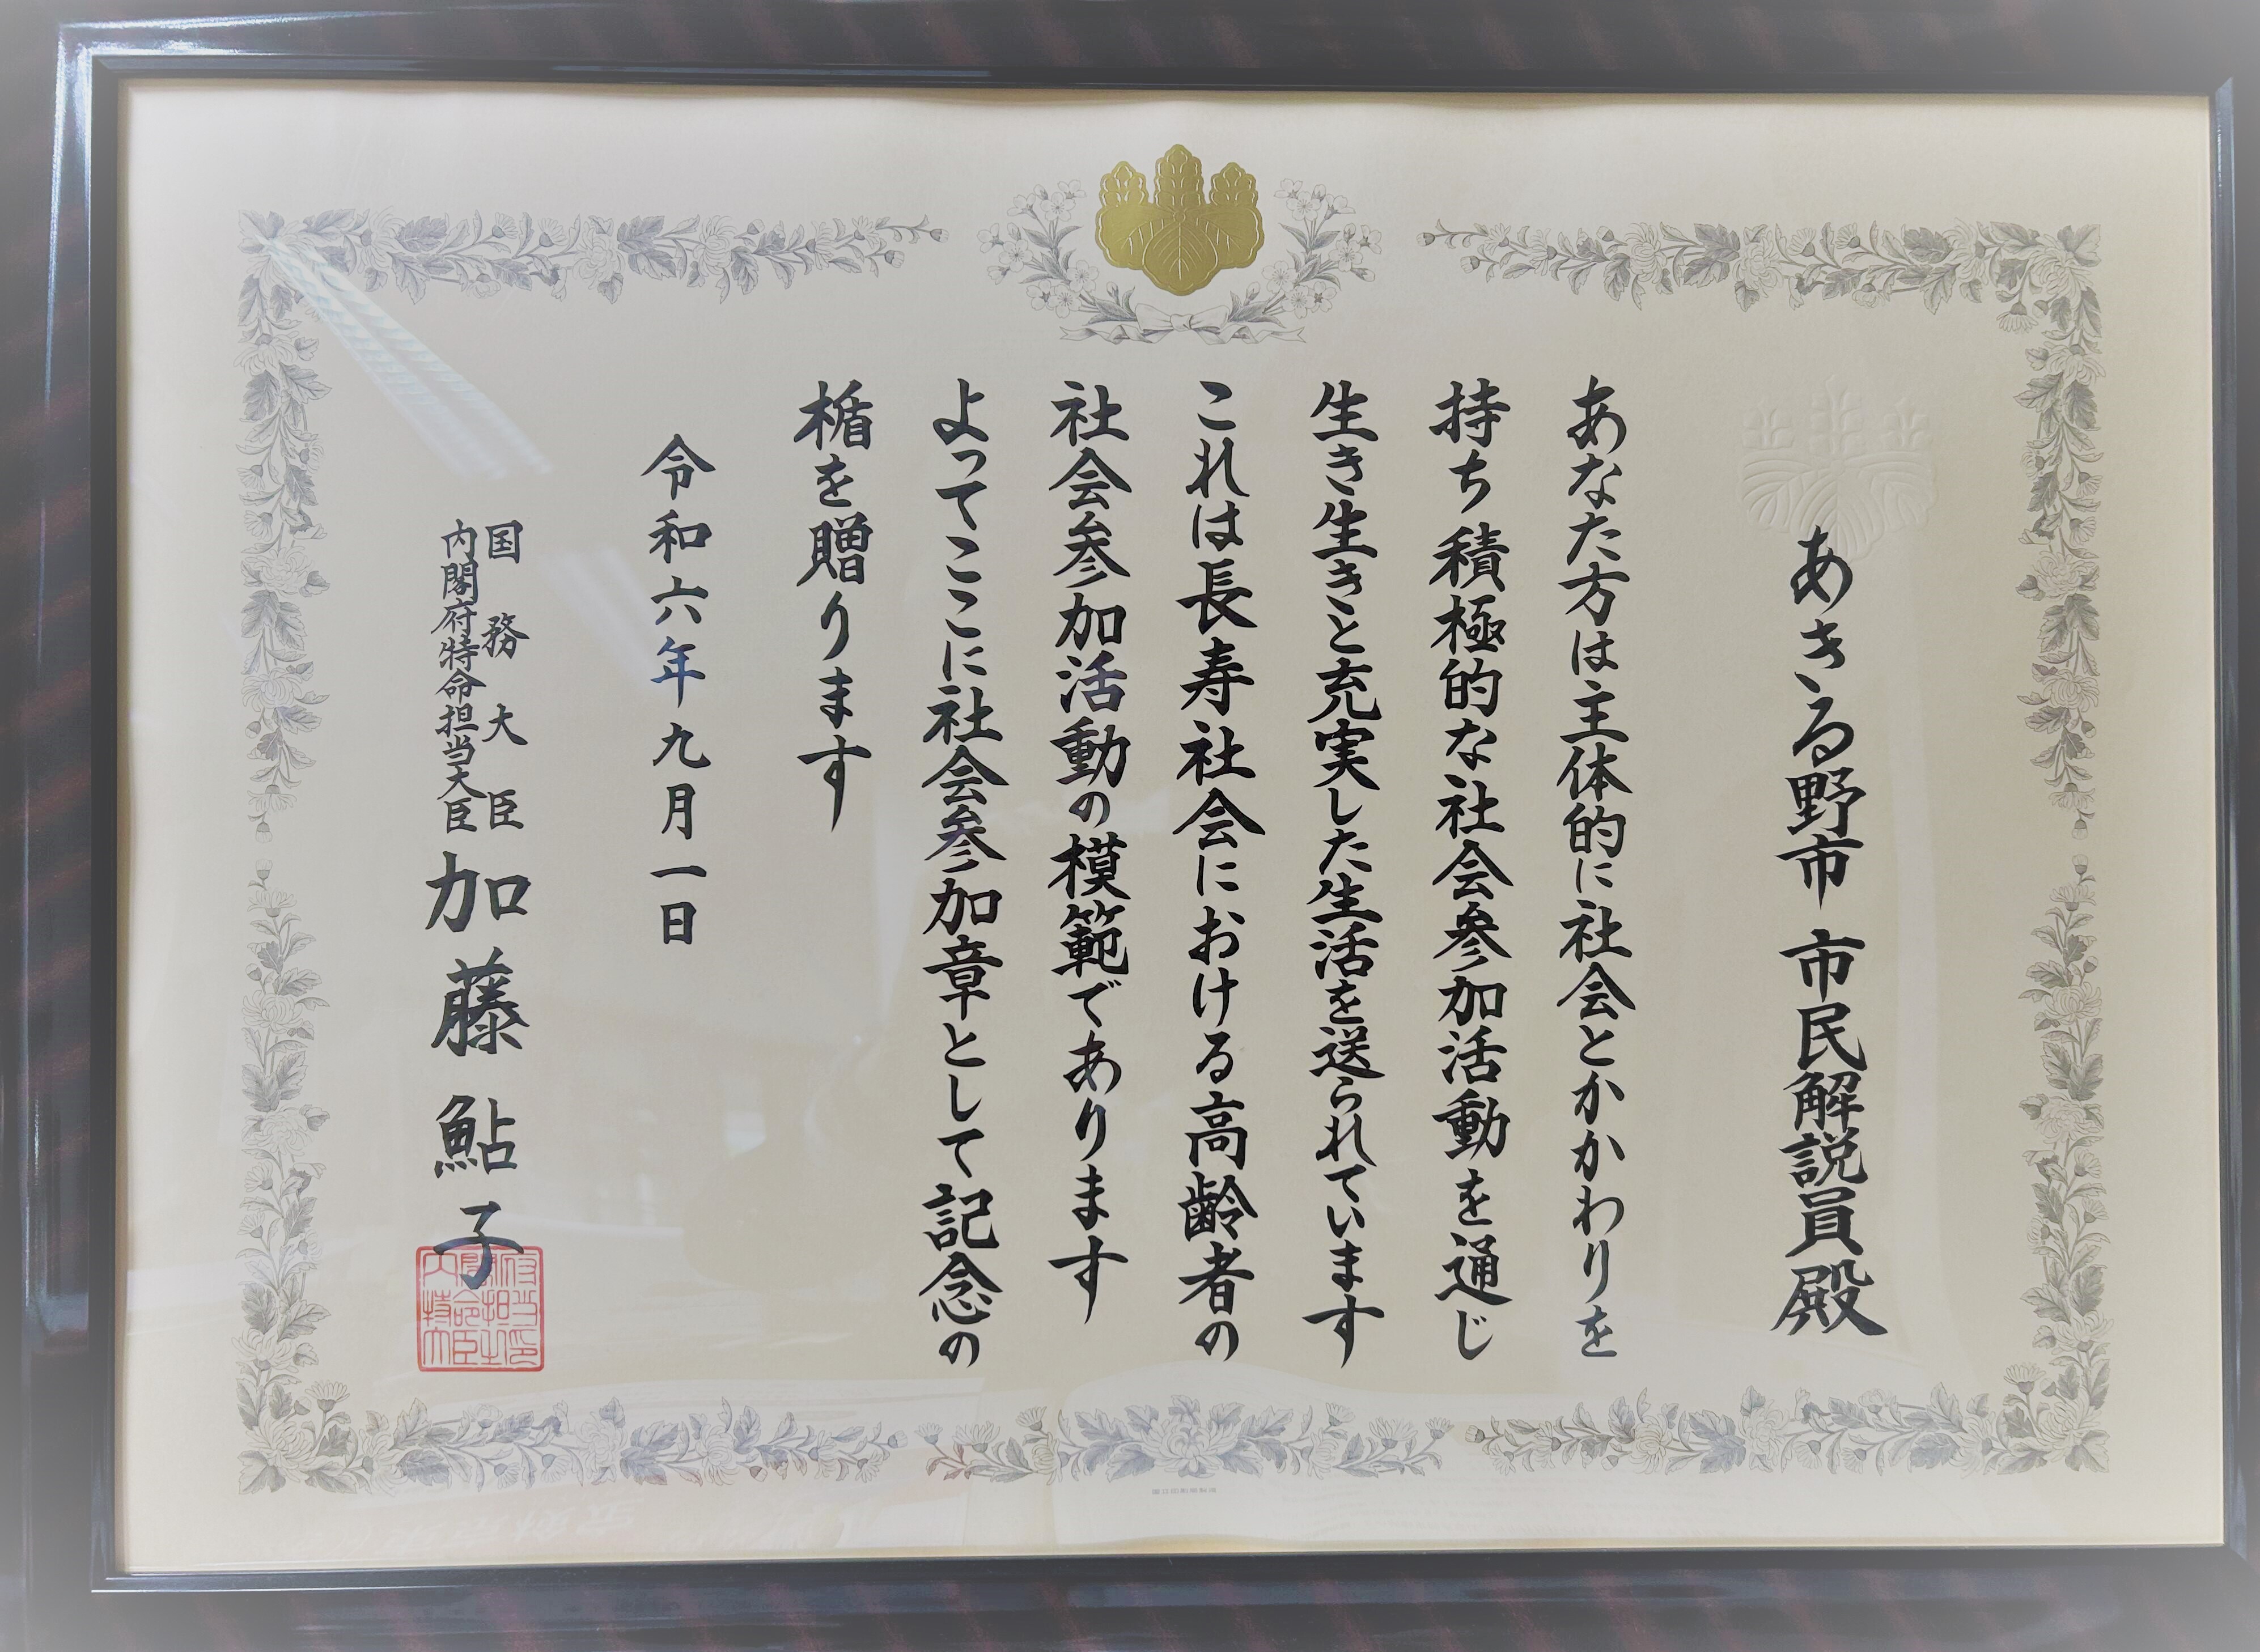 あきる野市 市民解説員殿
あなた方は主体的に社会とかかわりを
持ち積極的な社会参加活動を通じ
生き生きと充実した生活を送られています
これは長寿社会における高齢者の
社会参加活動の模範であります
よってここに社会参加章として記念の
楯を贈ります
令和六年九月一日
国務大臣
内閣府特命担当大臣
加藤鮎子
内閣府特命担当大臣之印